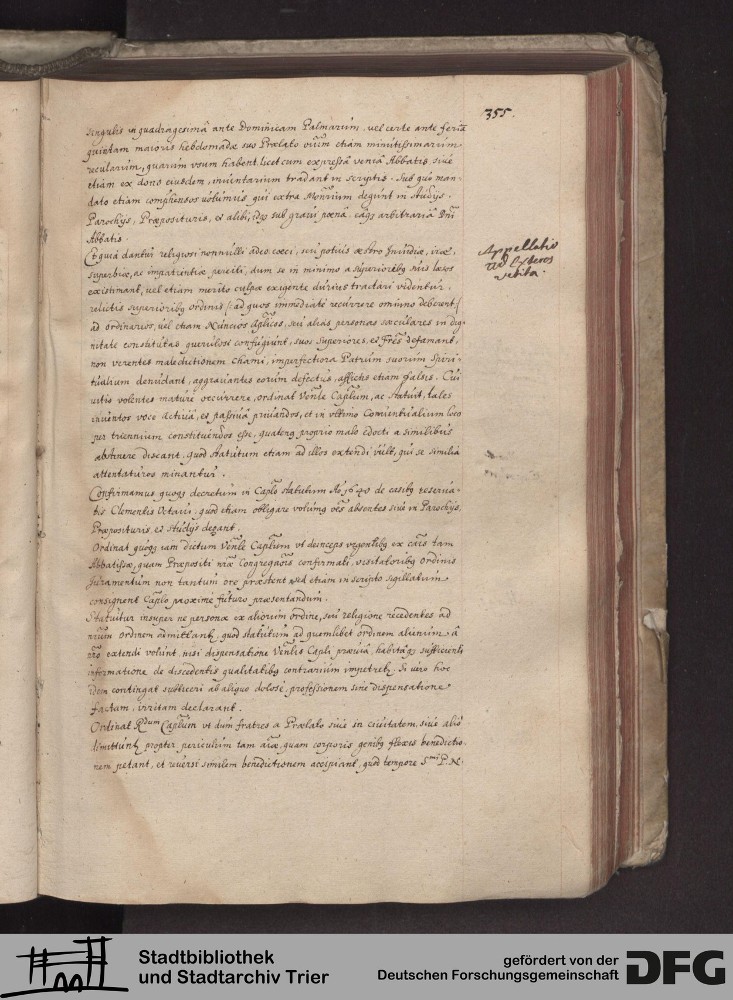 355.
singulis in quadragesimâ ante Dominicam Palmarum, vel certe ante feriã
quintam maioris hebdomadæ suo Prælato oîum etiam minutissimarum
recularum, quarum vsum habent licet cum expressâ veniâ Abbatis, sive
etiam ex dono eiusdem, inventarium tradant in scriptis. Sub quo man-
dato etiam comphensos volumus qui extra Monrium degunt in studijs.
Parochijs, Præposituris, et alibi, idq3 sub gravi pœnâ, eaq3 arbitrariâ Dñi
Abbatis.
Et quia dantur religiosi nonnulli adeo cœci, seu potius œstro Invidiæ, iræ,
superbiæ, ac impatientiæ perciti, dum se in minimo a superiorib9 suis læsos
existimant, vel etiam merito culpæ exigente durius tractari videntur,
relictis superiorib9 ordinis (: ad quos immediatè recurrere omnino deberent :)
ad ordinarios, vel etiam Nuncios Aplicos, seu alias personas sæculares in dig-
nitate constitutas querulosè confugiunt, suos superiores, et Frẽs defamant,
non verentes maledictionem chami, imperfectiora Patrum suorum spiri-
tualium denudant, aggravantes eorum defectus, affictis etiam falsis. Cui
vitio volentes mature occurrere, ordinat Venle Caplum, ac statuit, tales
inventos voce activâ, et passivâ privandos, et in vltimo Conventualium loco
per triennium constituendos esse, quaten9 proprio malo edocti a similibus
abstinere discant. quod statutum etiam ad illos extendi vult, qui se similia
attentaturos minantur.
Appellatio
ad Exteros
vetita.
Confirmamus quoq3 decretum in Caplo statutum Ao 1640 de casib9 reserva-
tis Clementis Octavi, quod etiam obligare volum9 oẽs absentes sive in Parochijs,
Præposituris, et studijs degant.
Ordinat quoq3 iam dictum Venle Caplum vt deinceps vrgentib9 ex caîs tam
Abbatissæ, quam Præpositi nræ Congregaõis confirmati, visitatorib9 ordinis
Juramentum non tantum ore præstent sed etiam in scripto sigillatum
consignent Caplo proxime futuro præsentandum.
Statuitur insuper ne personæ ex aliorum ordine, seu religione recedentes ad
nrum ordinem admittantr, quod statutum ad quemlibet ordinem alienum â
nro extendi volunt, nisi dispensatione Venlis Capli præviâ, habitaq3 sufficienti
informatione de discedentis qualitatib9 contrarium impetretr. Si vero hoc
idem contingat subticeri ab aliquo dolosè, professionem sine dispensatione
factam, irritam declarant.
Ordinat Rdum Caplum vt dum fratres a Prælato sive in civitatem, sive aliò
dimittuntr propter periculum tam aîæ, quam corporis genib9 flexis benedictio-
nem petant, et reversi similem benedictionem accipiant, quod tempore Smi P. N.
Stadtbibliothek
und Stadtarchiv Trier
gefördert von der
Deutschen Forschungsgemeinschaft
DFG